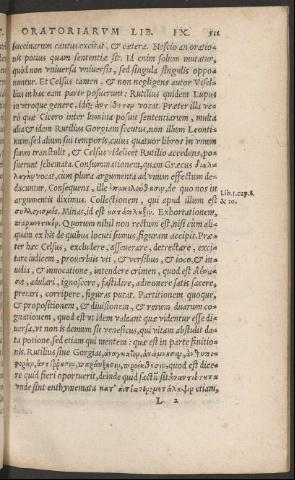 ORATORIARVM LIB. IX. 511
buccinarum cantus excitat, & cætera. Nescio an oratio-
nis potius quam sententiæ sit. Id enim solum mutatur,
quod non vniuersa vniuersis, sed singula singulis oppo-
nuntur. Et Celsus tamen, & non negligens autor Visel-
lius in hac eam parte posuerunt: Rutilius quidem Lupus
in vtroque genere, idq́; ἀντίθετον vocat. Præter illa ve-
rò quæ Cicero inter lumina posuit sententiarum, multa
alia & idem Rutilius Gorgiam secutus, non illum Leonti-
num, sed alium sui temporis, cuius quatuor libros in vnum
suum transtulit, & Celsus videlicet Rutilio accedens, po-
suerunt schemata. Consummationem, quam Græcus διαλ-
λαγὴν vocat, cum plura argumenta ad vnum effectum de-
ducuntur. Consequens, ille ἐπακολούθησιν, de quo nos in
argumentis diximus. Collectionem, qui apud illum est
συλλογισμός. Minas, id est κατάπληξιν. Exhortationem,
παραινετικόν. Quorum nihil non rectum est, nisi cùm ali-
quam ex his de quibus locuti sumus, figuram accipit. Præ-
ter hæc Celsus, excludere, asseuerare, detrectare, exci-
tare iudicem, prouerbiis vti, & versibus, & ioco, & in
uidia, & inuocatione, intendere crimen, quod est δείνω-
σις, adulari, ignoscere, fastidire, admonere satis facere,
precari, corripere, figuras putat. Partitionem quoque,
& propositionem, & diuisionem, & rerum duarum co-
gnationem, quod est vt idem valeant quæ videntur esse di-
uersa, vt non is domum sit veneficus, qui vitam abstulit da-
ta potione, sed etiam qui mentem: quæ est in parte finitio-
nis. Rutilius siue Gorgias,
quod est dice-
re quid fieri oportuerit, deinde quid factū sit:
vnde sint enthymemata etiam,
L 2
Lib.5.cap.8.
& 10.